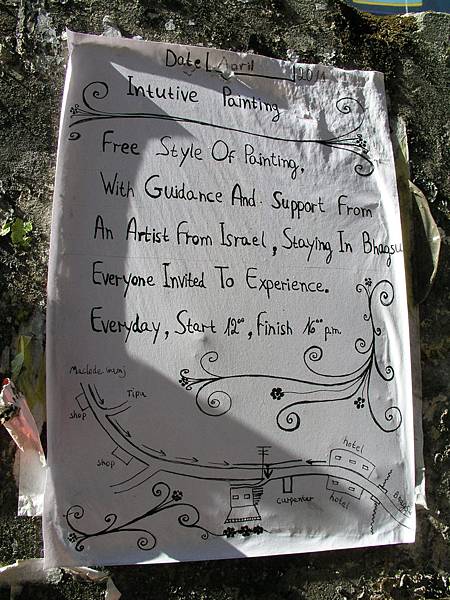 Date April
Intutive Painting
Free Style Of Painting,
With Guidance And Support From
An Artist From Israel, Staying In Bhagsu
Everyone Invited To Experience.
Everyday, Start 12⁰⁰, Finish 16⁰⁰ p.m.
Tipu
shop
hotel
shop
carpenter
hotel